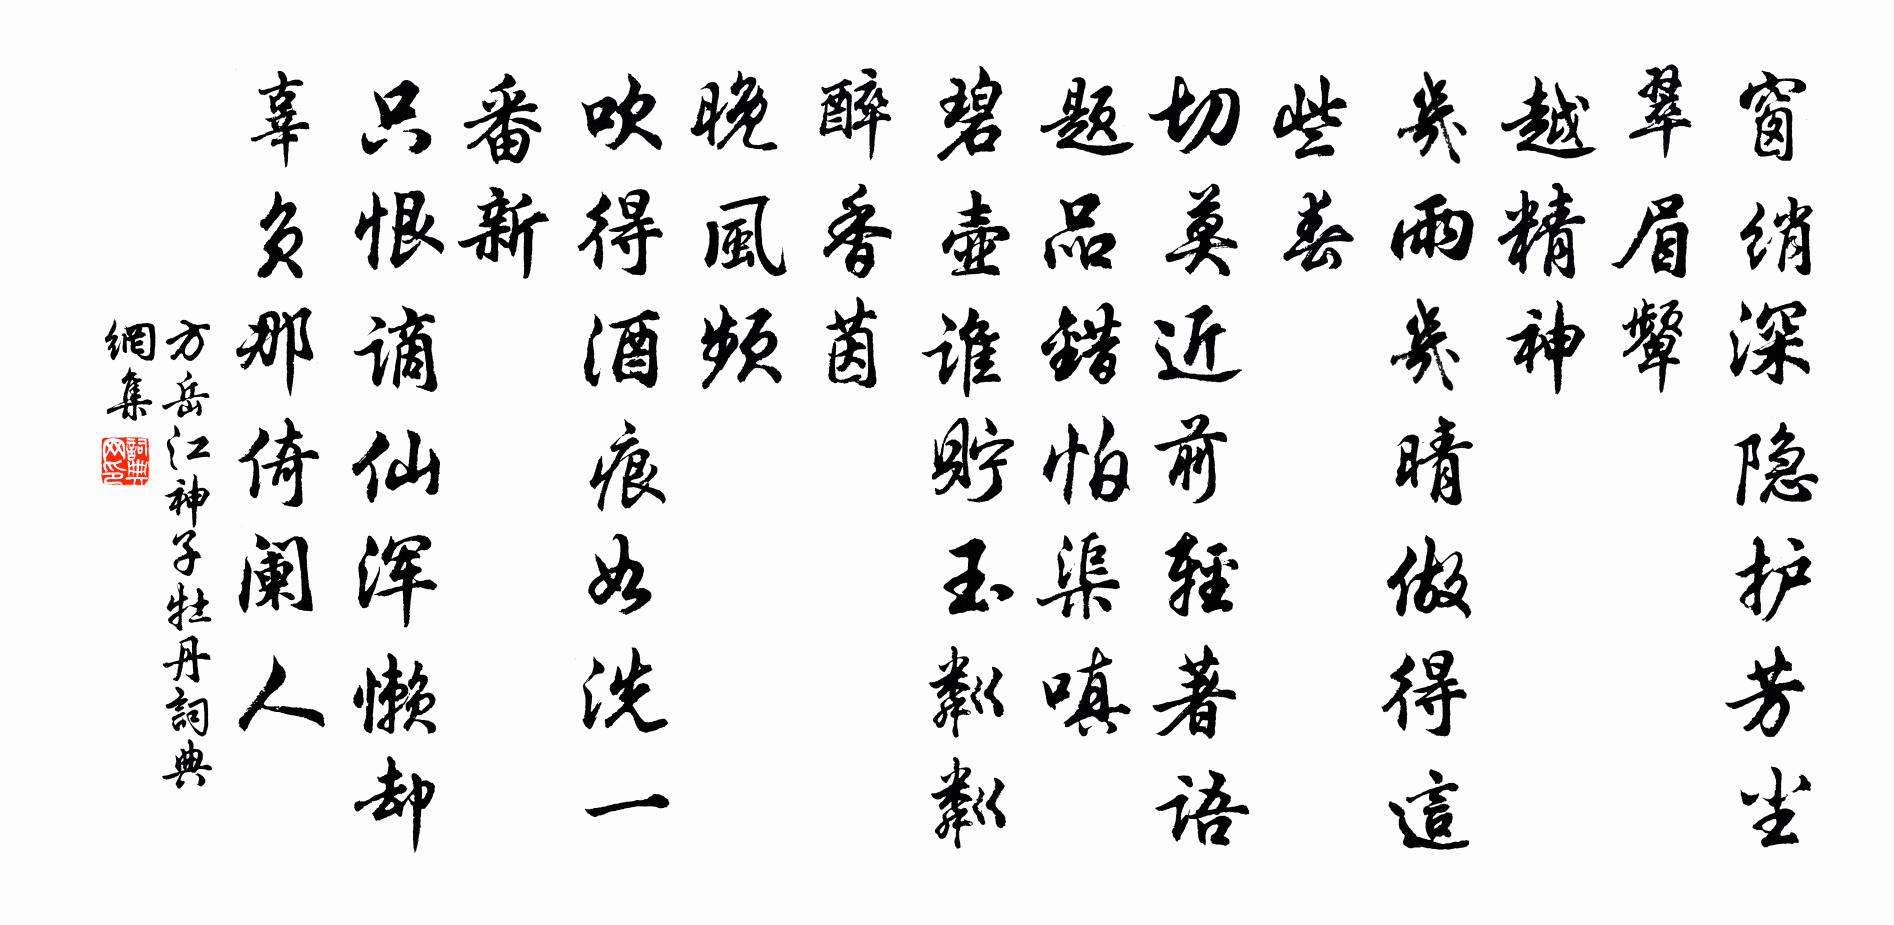 窗綃深隐护芳尘
翠眉顰
越精神
幾雨幾晴做得這
些春
切莫近前輕著語
题品錯怕渠嗔
碧壶谁貯玉粼粼
醉香茵
晚風频
吹得酒痕如洗一
番新
只恨谪仙浑懒却
辜负那倚阑人
方岳江神子牡丹詞典
網集
詞典
网印